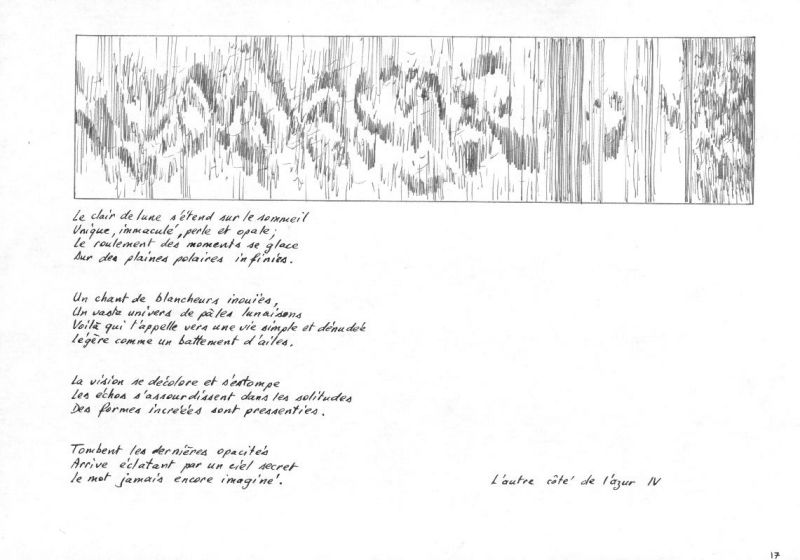 Le clair de lune s'étend sur le sommeil
Unique, immaculé, perle et opale;
Le roulement des moments se glace
Sur des plaines polaires infinies.
Un chant de blancheurs inouïes,
Un vaste univers de pâles lunaisons
Voilà qui t'appelle vers une vie simple et dénudée
Légère comme un battement d'ailes.
La vision se décolore et s'estompe
Les échos s'assourdissent dans les solitudes
Des formes incréées sont pressenties.
Tombent les dernières opacités
Arrive éclatant par un ciel secret
Le mot jamais encore imaginé.
L'autre côté de l'azur IV
17